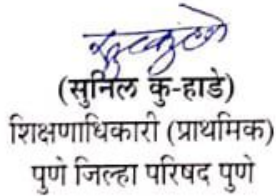 (सुनिल कु-हाडे)
शिक्षणाधिकारी (प्राथमिक)
पुणे जिल्हा परिषद पुणे